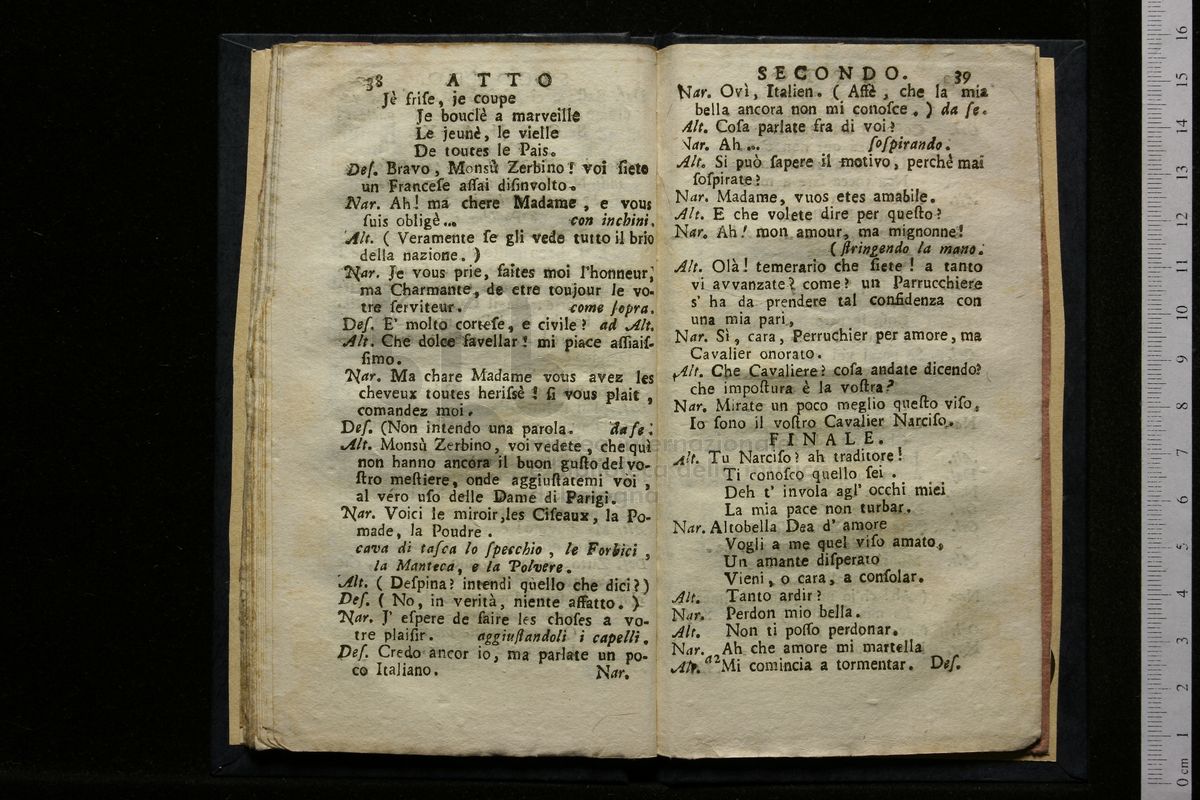 38 ATTO
Jè frise, je coupe
Je bouclè a marveille
Le jeunè, le vielle
De toutes le Pais.
Des. Bravo, Monsù Zerbino! voi siete
un Francese assai disinvolto.
Nar. Ah! ma chere Madame, e vous
suis obligè... con inchini.
Alt. ( Veramente se gli vede tutto il brio
della nazione. )
Nar. Je vous prie, faites moi l'honneur,
ma Charmante, de etre toujour le vo-
tre serviteur. come sopra.
Des. E' molto cortese, e civile? ad Alt.
Alt. Che dolce favellar! mi piace assiais-
simo.
Nar. Ma chare Madame vous avez les
cheveux toutes herissè! si vous plait,
comandez moi.
Des. (Non intendo una parola. da se:
Alt. Monsù Zerbino, voi vedete, che quì
non hanno ancora il buon gusto del vo-
stro mestiere, onde aggiustatemi voi,
al vero uso delle Dame di Parigi.
Nar. Voici le miroir, les Ciseaux, la Po-
made, la Poudre.
cava di tasca lo specchio, le Forbici,
la Manteca, e la Polvere.
Alt. ( Despina? intendi quello che dici?)
Des. ( No, in verità, niente affatto. )
Nar. J' espere de faire les choses a vo-
tre plaisir. aggiustandoli i capelli.
Des. Credo ancor io, ma parlate un po-
co Italiano. Nar.
SECONDO. 39
Nar. Ovì, Italien. ( Affè, che la mia
bella ancora non mi conosce. ) da se.
Alt. Cosa parlate fra di voi?
Nar. Ah... sospirando.
Alt. Si può sapere il motivo, perchè mai
sospirate?
Nar. Madame, vuos etes amabile.
Alt. E che volete dire per questo?
Nar. Ah! mon amour, ma mignonne!
( stringendo la mano.
Alt. Olà! temerario che siete! a tanto
vi avvanzate? come? un Parrucchiere
s' ha da prendere tal confidenza con
una mia pari,
Nar. Sì, cara, Perruchier per amore, ma
Cavalier onorato.
Alt. Che Cavaliere? cosa andate dicendo?
che impostura è la vostra?
Nar. Mirate un poco meglio questo viso,
Io sono il vostro Cavalier Narciso.
FINALE.
Alt. Tu Narciso? ah traditore!
Ti conosco quello sei.
Deh t' invola agl' occhi miei
La mia pace non turbar.
Nar. Altobella Dea d' amore
Vogli a me quel viso amato,
Un amante disperato
Vieni, o cara, a consolar.
Alt. Tanto ardir?
Nar. Perdon mio bella.
Alt. Non ti posso perdonar.
Nar. Ah che amore mi martella
Alt. a2 Mi comincia a tormentar. Des.
0 cm 1 2 3 4 5 6 7 8 9 10 11 12 13 14 15 16